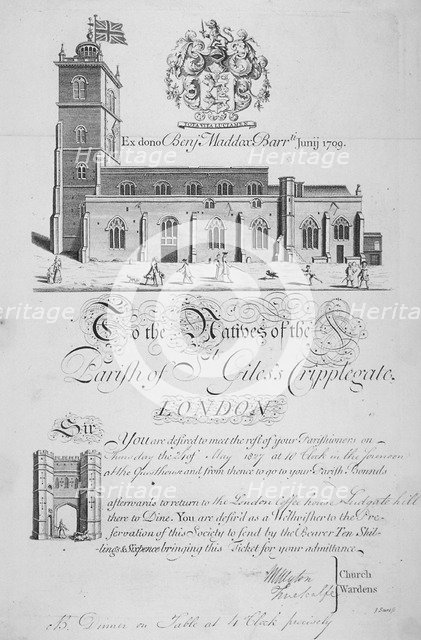 TOTA VITA LUCTAMEN
Ex dono Benj. Maddox Barr.tt Junij 1709.
To the Natives of the
Parish of St Giles's Cripplegate.
LONDON
Sir
YOU are desired to meet the rest of your Parishioners on
Thursday the 24 of May 18 7 at 10 Clock in the forenoon
at the Questhouse and from thence to go to your Parish Bounds
afterwards to return to the London Coffe house Ludgate hill
there to Dine. You are desir'd as a Wellwisher to the Pre-
servation of this Society to send by the Bearer Ten Shil-
lings & Sixpence bringing this Ticket for your admittance.
Church
Wardens
J Sturt sc
NB. Dinner on Table at 4 Clock precisely
Heritage
Heritage
Heritage
Heritage
Heritage
Heritage